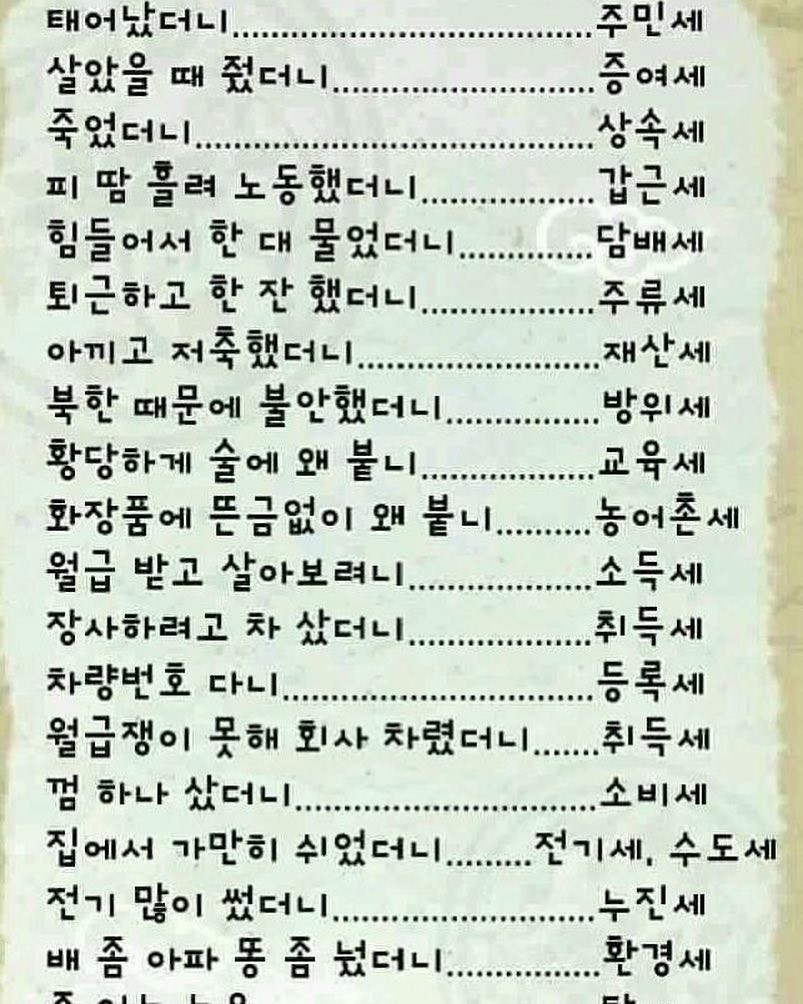 태어났더니..............................................주민세
살았을 때 줬더니.................................증여세
죽었더니..................................................상속세
피 땀 흘려 노동했더니......................갑근세
힘들어서 한 대 물었더니.................담배세
퇴근하고 한 잔 했더니......................주류세
아끼고 저축했더니...............................재산세
북한 때문에 불안했더니...................방위세
황당하게 술에 왜 붙니......................교육세
화장품에 뜬금없이 왜 붙니............농어촌세
월급 받고 살아보려니.......................소득세
장사하려고 차 샀더니.......................취득세
차량번호 다니.......................................등록세
월급쟁이 못해 회사 차렸더니........취득세
껌 하나 샀더니......................................소비세
집에서 가만히 쉬었더니.........전기세, 수도세
전기 많이 썼더니.................................누진세
배 좀 아파 똥 좀 눴더니...................환경세